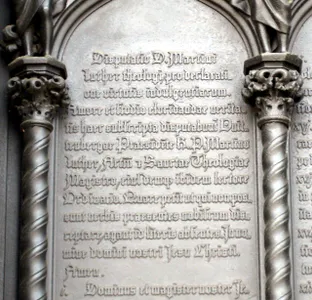 Disputatio D. Martini
Luther theologi, pro declarati
one virtutis indulgentiarum.
Amore et studio elucidandae verita
tis haec subscripta disputabuntur Wit
tenbergae Praesidente R. P. Martino
Luther, Artium et Sanctae Theologiae
Magistro, eiusdemque ibidem lectore
Ordinario. Quare petit ut qui non pos
sunt verbis praesentes nobiscum dis
ceptare, agant id literis absentes. In no
mine domini nostri Jesu Christi.
Amen.
i. Dominus et magister noster Je